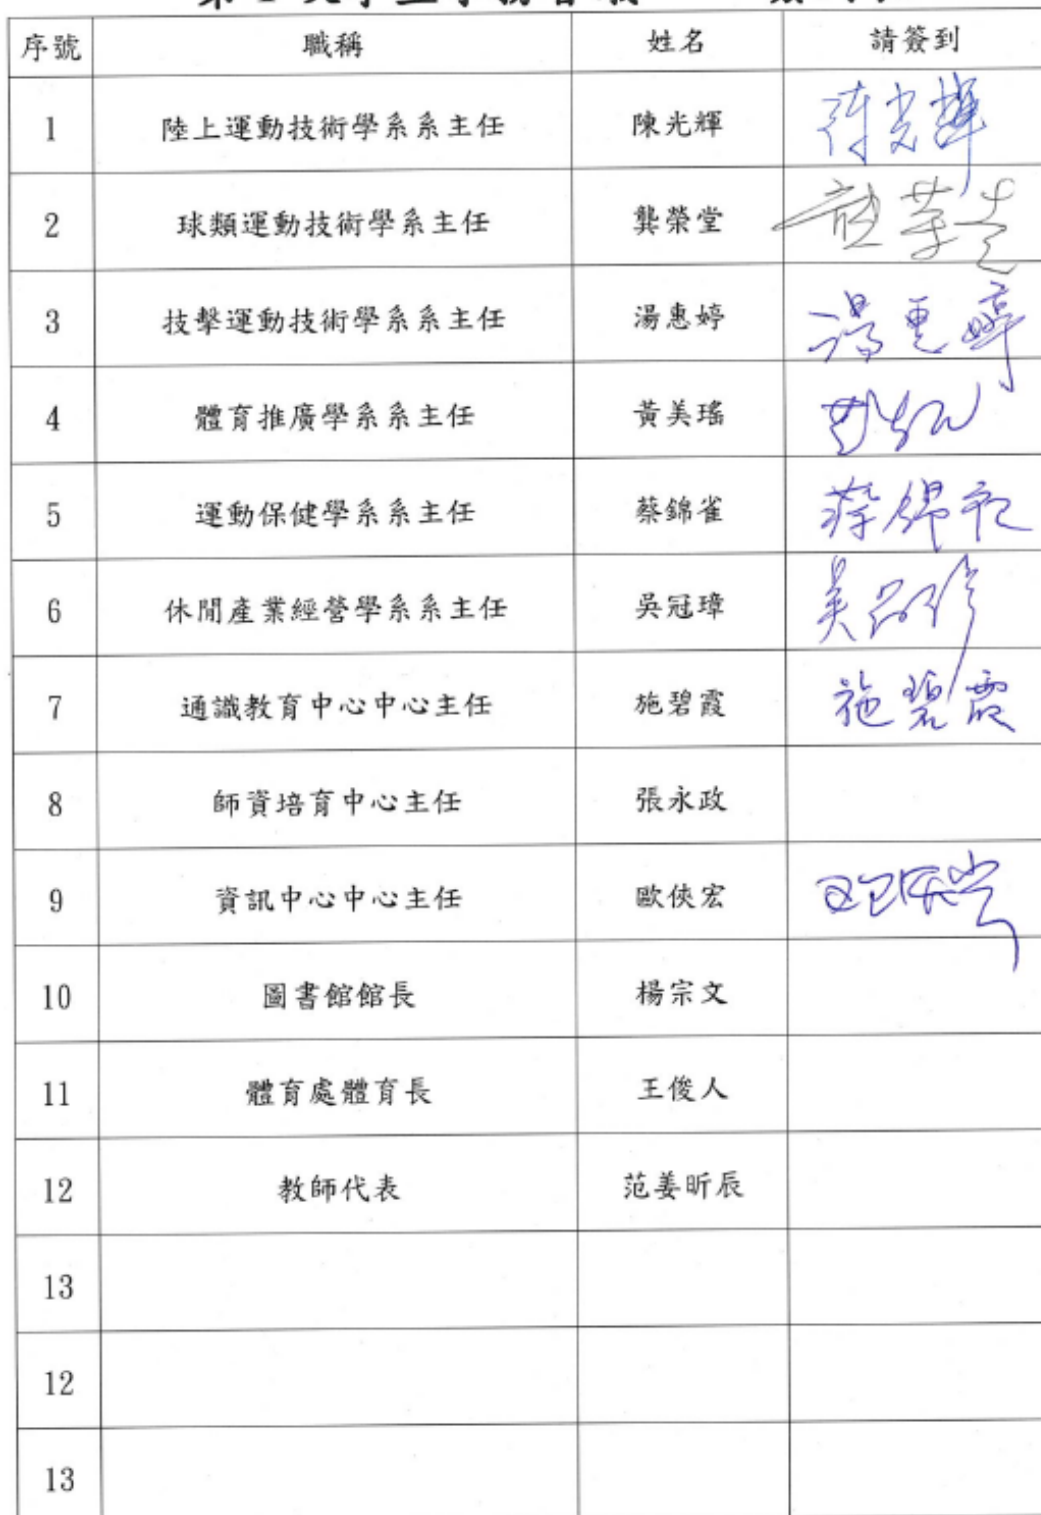 序號 職稱 姓名 請簽到
1 陸上運動技術學系系主任 陳光輝 陳光輝
2 球類運動技術學系主任 龔榮堂
3 技擊運動技術學系系主任 湯惠婷 湯惠婷
4 體育推廣學系系主任 黃美瑤
5 運動保健學系系主任 蔡錦雀 蔡錦雀
6 休閒產業經營學系系主任 吳冠璋
7 通識教育中心中心主任 施碧霞 施碧霞
8 師資培育中心主任 張永政
9 資訊中心中心主任 歐俠宏
10 圖書館館長 楊宗文
11 體育處體育長 王俊人
12 教師代表 范姜昕辰
13
12
13